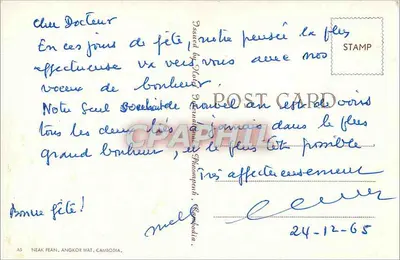 cher Docteur
En ces jours de fête, notre pensée la plus
affectueuse va vers vous avec nos
voeux de bonheur.
Notre seul souhait de nouvel an est de vous
tous les deux liés à jamais dans le plus
grand bonheur, et le plus tôt possible
très affectueusement
Bonne fête!
24-12-65
STAMP
POST CARD
CPAPHIL
Issued by Hotel
Cambodia.
A5 NEAK PEAN, ANGKOR WAT, CAMBODIA.